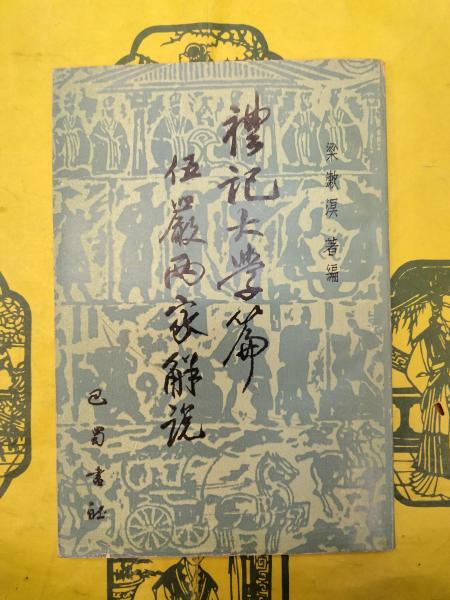 梁漱溟 著编
禮記大学篇
伍嚴两家解说
巴蜀書社